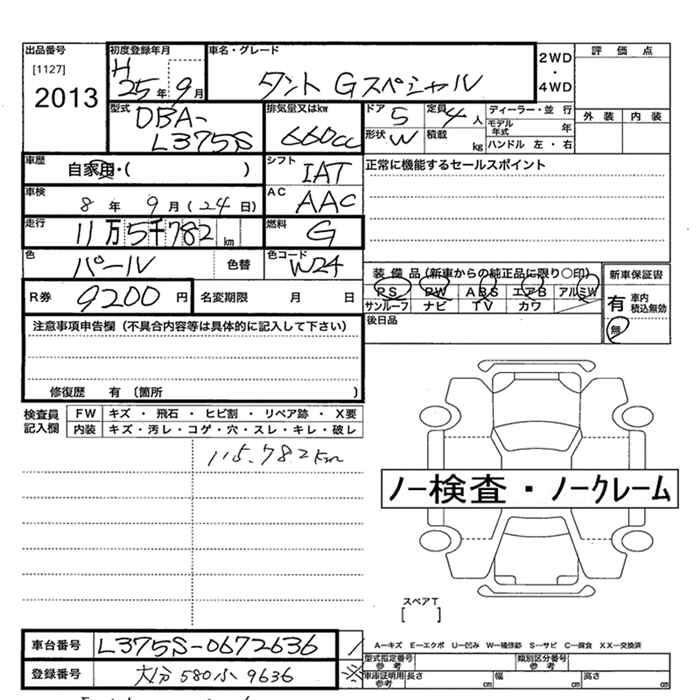 出品番号
[1127]
2013
初度登録年月
H
25 年 9 月
車名・グレード
タント Gスペシャル
2WD
・
4WD
評価点
外装 内装
型式
DBA-
L375S
排気量又はkw
660cc
ドア 5
定員 4 人
形状 W
積載 kg
ディーラー・並 行
モデル年式 年
ハンドル 左・右
車歴
自家用・( )
シフト
IAT
正常に機能するセールスポイント
車検
8 年 9 月 (24 日)
AC
AAC
走行
11万5千782 km
燃料
G
色
パール
色替
色コード
W24
装備品(新車からの純正品に限り○印)
PS PW ABS エアB アルミW
サンルーフ ナビ TV カワ
後日品
新車保証書
有
車内
積込無効
無
R券 9200 円
名変期限 月 日
注意事項申告欄(不具合内容等は具体的に記入して下さい)
修復歴 有(箇所 )
検査員
記入欄
FW キズ ・ 飛石 ・ ヒビ割 ・ リペア跡 ・ X要
内装 キズ・汚レ・コゲ・穴・スレ・キレ・破レ
115.782km
ノー検査・ノークレーム
スペアT
[ ]
車台番号 L375S-0672636
登録番号 大分 580 9636
A―キズ E―エクボ U―凹み W―補修跡 S―サビ C―腐食 XX―交換済
型式指定番号
参考
類別区分番号
参考
車庫証明用
参考
長さ cm 幅 cm 高さ cm